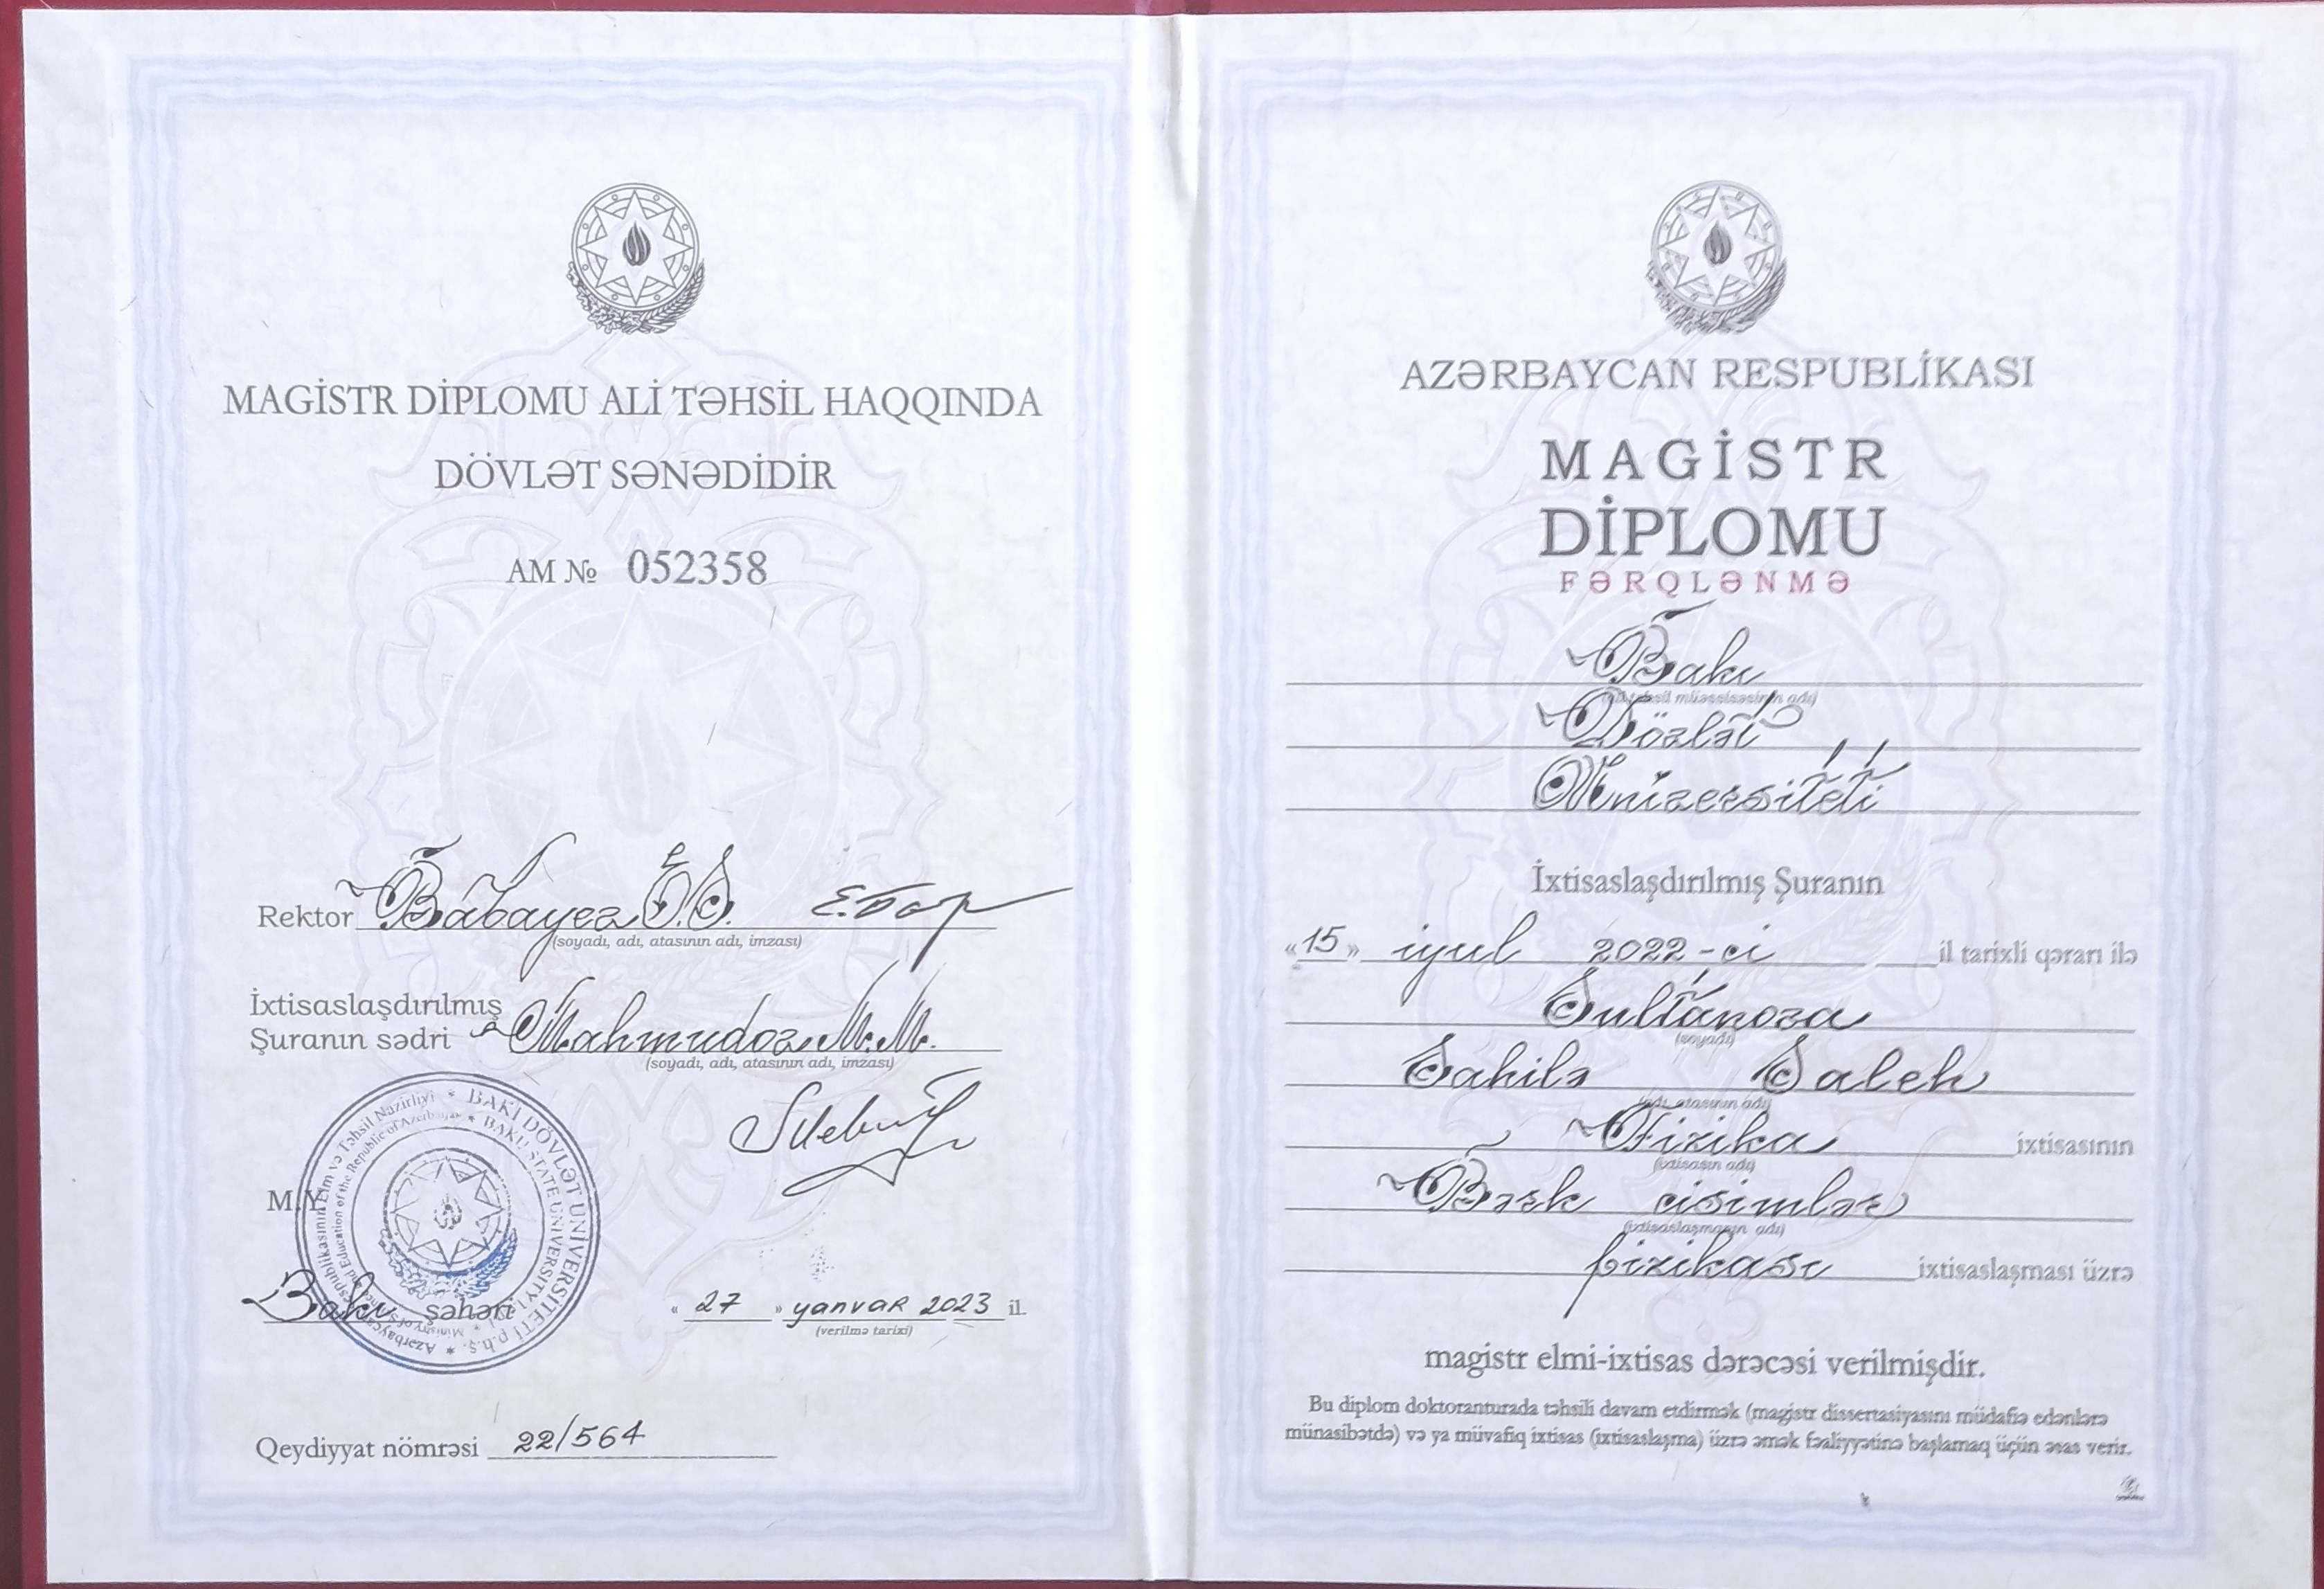 MAGİSTR DİPLOMU ALİ TƏHSİL HAQQINDA
DÖVLƏT SƏNƏDİDİR
AM № 052358
Rektor Babayev E.S.
(soyadı, adı, atasının adı, imzası)
İxtisaslaşdırılmış
Şuranın sədri Mahmudov M.M.
(soyadı, adı, atasının adı, imzası)
M.Y.
BAKI DÖVLƏT UNİVERSİTETİ p.h.ş.
BAKU STATE UNIVERSITY
Bakı şəhəri « 27 » yanvar 2023 il.
(verilmə tarixi)
Qeydiyyat nömrəsi 22/564
AZƏRBAYCAN RESPUBLİKASI
MAGİSTR
DİPLOMU
FƏRQLƏNMƏ
Bakı
(ali təhsil müəssisəsinin adı)
Dövlət
Universiteti
İxtisaslaşdırılmış Şuranın
«15» iyul 2022-ci il tarixli qərarı ilə
Sultanova
(soyadı)
Sahilə Saleh
(adı, atasının adı)
Fizika ixtisasının
(ixtisasın adı)
Bərk cisimlər
(ixtisaslaşmanın adı)
fizikası ixtisaslaşması üzrə
magistr elmi-ixtisas dərəcəsi verilmişdir.
Bu diplom doktoranturada təhsili davam etdirmək (magistr dissertasiyasını müdafiə edənlərə
münasibətdə) və ya müvafiq ixtisas (ixtisaslaşma) üzrə əmək fəaliyyətinə başlamaq üçün əsas verir.